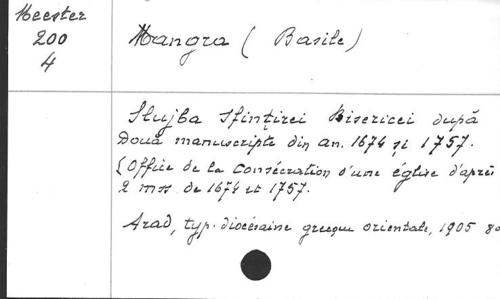 Meester
200
4
Mangra ( Basile)
Slujba Sfinţirei Bisericei după
Două manuscripte din an. 1674 şi 1757.
(Office de la Consécration d'une église d'après
2 mss de 1674 et 1757.
Arad, typ. diocésaine grecque orientale, 1905 80